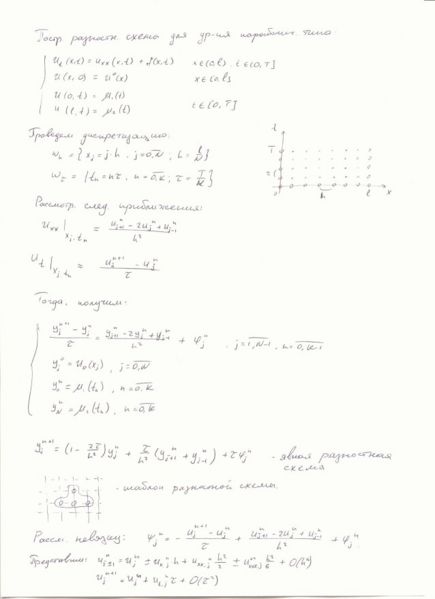 Постр. разностн. схема для ур-ия параболич. типа
u_t(x,t) = u_xx(x,t) + f(x,t) x∈(0,l), t∈(0,T]
u(x,0) = u⁰(x) x∈[0,l]
u(0,t) = μ₁(t)
u(l,t) = μ₂(t) t∈[0,T]
Проведем дискретизацию:
ω_h = {x_j = j·h, j=0,N, h = l/N}
ω_τ = {t_n = nτ, n=0,K; τ = T/K}
t
T
τ
h
l
x
Рассмотр. след. приближения:
u_xx|_{x_j,t_n} = (u_{j+1}^n − 2u_j^n + u_{j-1}^n)/h²
u_t|_{x_j,t_n} = (u_j^{n+1} − u_j^n)/τ
Тогда, получим:
(y_j^{n+1} − y_j^n)/τ = (y_{j+1}^n − 2y_j^n + y_{j-1}^n)/h² + φ_j^n, j=1,N-1, n=0,K-1
y_j^0 = u_0(x_j), j=0,N
y_0^n = μ₁(t_n), n=0,K
y_N^n = μ₂(t_n), n=0,K
y_j^{n+1} = (1 − 2τ/h²) y_j^n + τ/h² (y_{j+1}^n + y_{j-1}^n) + τφ_j^n - явная разностная
схема
- шаблон разностной схемы.
Рассм. невязку: ψ_j^n = − (u_j^{n+1} − u_j^n)/τ + (u_{j+1}^n − 2u_j^n + u_{j-1}^n)/h² + φ_j^n.
Представим: u_{j±1}^n = u_j^n ± u_{x,j}^n h + u_{xx,j}^n h²/2 ± u_{xxx,j}^n h³/6 + O(h⁴)
u_j^{n+1} = u_j^n + u_{t,j}^n τ + O(τ²)